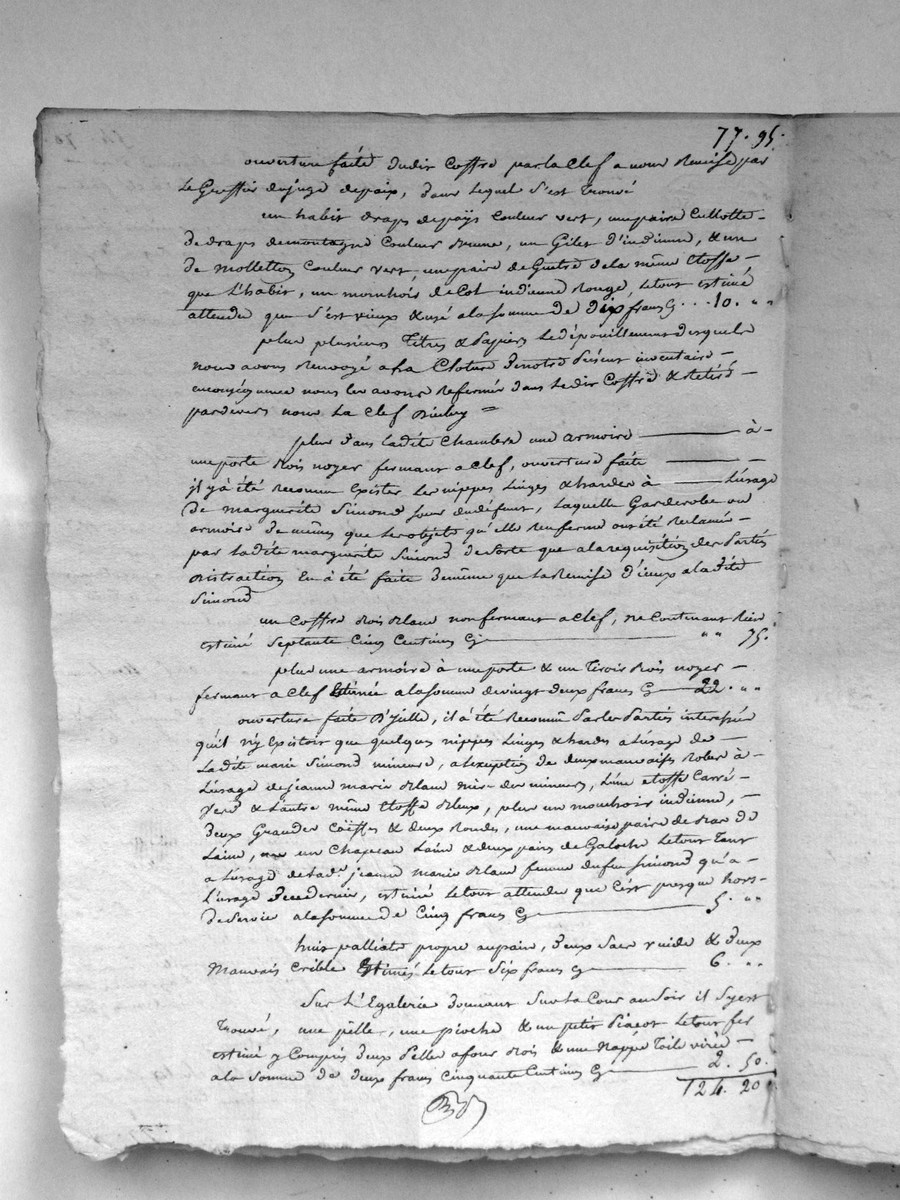 77. 95.
ouverture faite dudit Coffre par la Clef a nous Remise par
Le Greffier du juge de paix, dans Lequel S'est Trouvé
un habit draps de païs Couleur vert, une paire Cullotte
de draps de montagne Couleur Brune, un Gilet d'indienne, & un
de Molletton Couleur vert, une paire de Guetre de la même Etoffe
que L'habit, un mouchois de Col indienne Rouge, Le tout estimé
attendu que s'est vieux & usé a la somme de dix francs Cy ... 10. " "
plus plusieurs Titres & Papiers Le dépouillement desquels
nous avons Renvoyé a La Cloture de notre Présent inventaire
en conséquence nous les avons Refermé dans Ledit Coffre & Retiré
pardevers nous La Clef
plus dans Ladite Chambre une armoire à
une porte Bois noyer fermant a Clef, ouverture faite
il y a été Reconnu Exister Les nippes Linges & hardes à L'usage
de marguerite Simond soeur du défunt, Laquelle Garderobe ou
armoire de mêmes que Les objets qu'elle Renferme ont été Reclamés
par Ladite marguerite Simond de sorte que a la requisition des Parties
Distraction En a été faite de même que La Remise d'iceux a Ladite
Simond
un Coffre Bois Blanc non fermant a Clef, ne Contenant Rien
estimé Septante Cinq Centimes Cy " " 75.
plus une armoire à une porte & un Tiroir Bois noyer
fermant a Clef Estimée a la somme de vingt deux francs Cy 22. " "
ouverture faite D'ycelle, il a été Reconnu Par les Parties interessées
qu'il n'y Existoit que quelques nippes Linges & hardes a L'usage de
Ladite marie Simond mineure, a L'exeption de deux mauvaises Robes à
L'usage de jeanne marie Blanc mère des mineurs, L'une etoffe Carré
Verd & L'autre même Etoffe Bleux, plus un mouchoir indienne,
deux Grandes Coëffes & deux Rondes, une mauvaise paire de Bas de
Laine, un Chapeau Laine & deux pairs de Galoche Le tout Tant
a L'usage de Lade jeanne marie Blanc femme du feu Simond qu'a
L'usage de ce dernier, estimé Le tout attendu que C'est presque hors
de Service a la somme de Cinq francs Cy 5. " "
huit palliats propre au pain, deux Sacs vuide & deux
Mauvais Crible Estimés Le tout Six francs Cy 6. " "
Sur L'Egalerie donnant Sur La Cour au Soir il S'y est
Trouvé, une pelle, une pioche & un petit Piacot Le tout fer
estimé y Compris deux Pelle a four Bois & une Nappe Toile
a La Somme de deux francs Cinquante Centimes Cy 2. 50.
124. 20